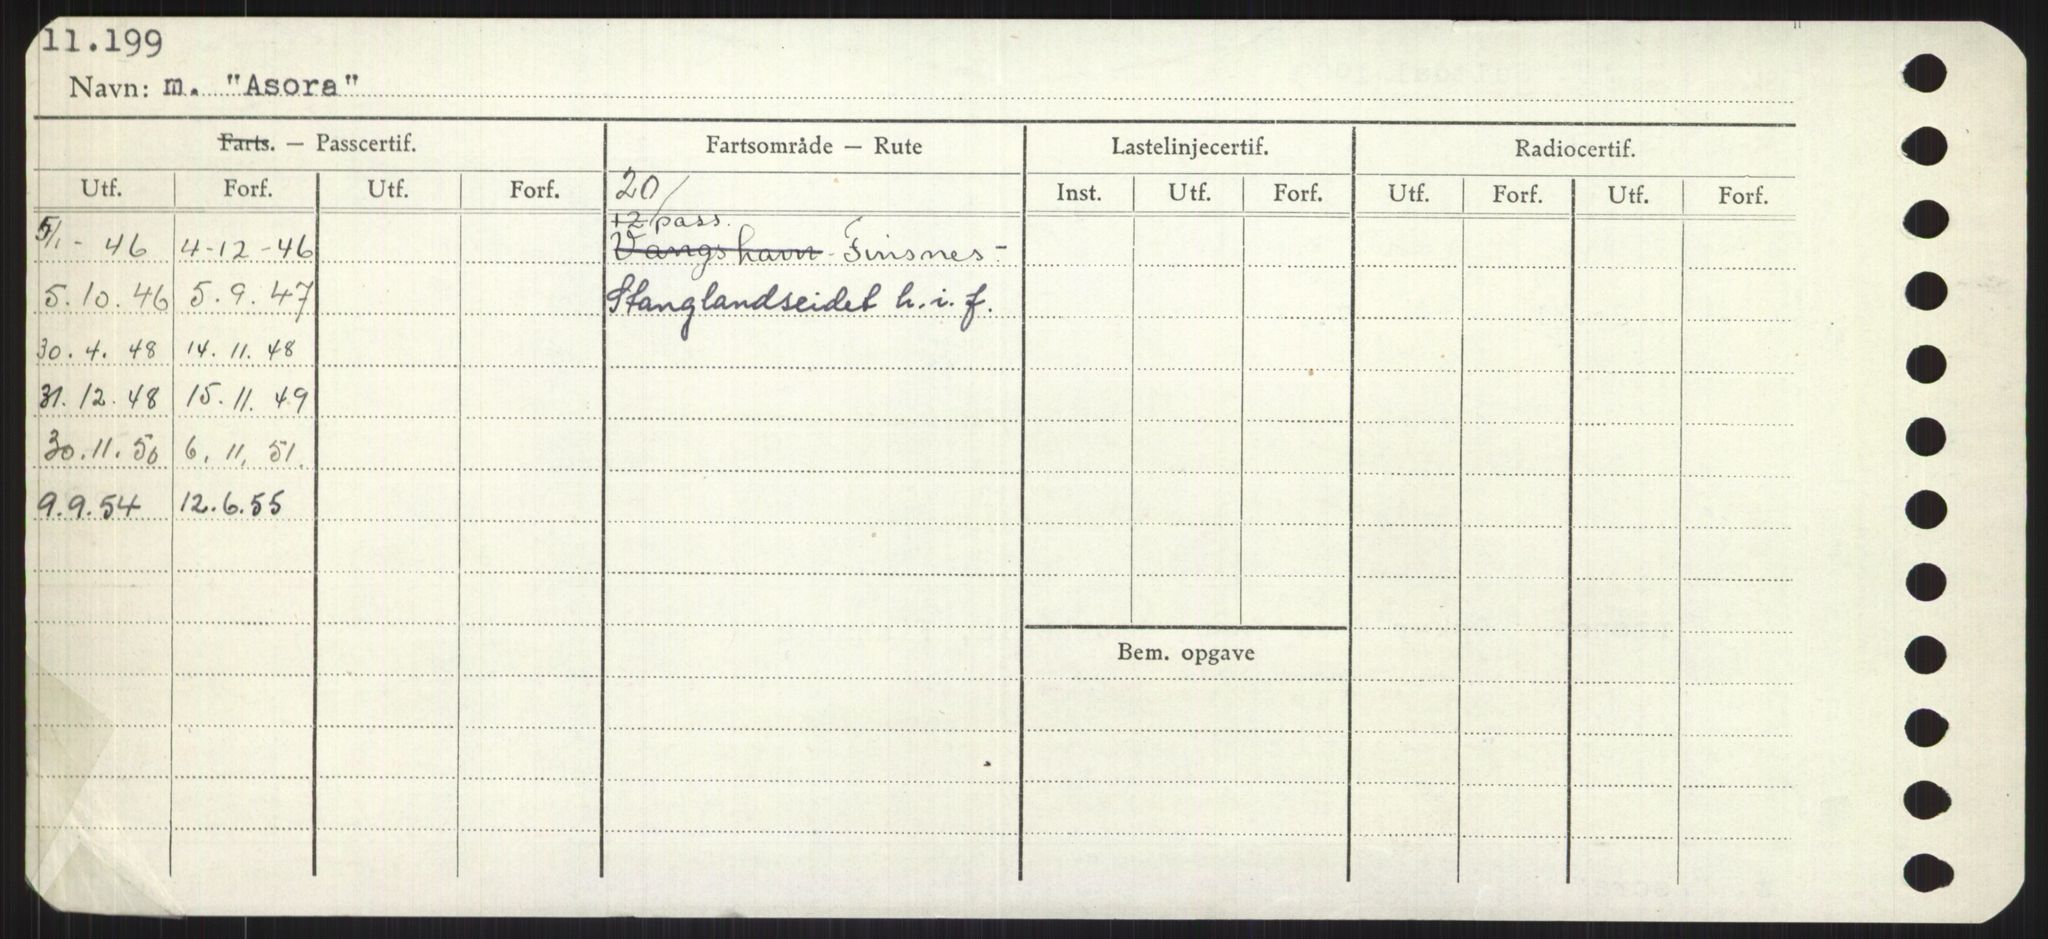 11.199
Navn: m. "Asora"
Farts. — Passcertif. Fartsområde — Rute Lastelinjecertif. Radiocertif.
Utf. Forf. Utf. Forf. 20/ Inst. Utf. Forf. Utf. Forf. Utf. Forf.
12 pass.
5/1 - 46 4-12-46 Vangshavn - Finsnes -
5.10.46 5.9.47 Stanglandseidet h.i.f.
30.4.48 14.11.48
31.12.48 15.11.49
30.11.50 6.11.51.
9.9.54 12.6.55
Bem. opgave